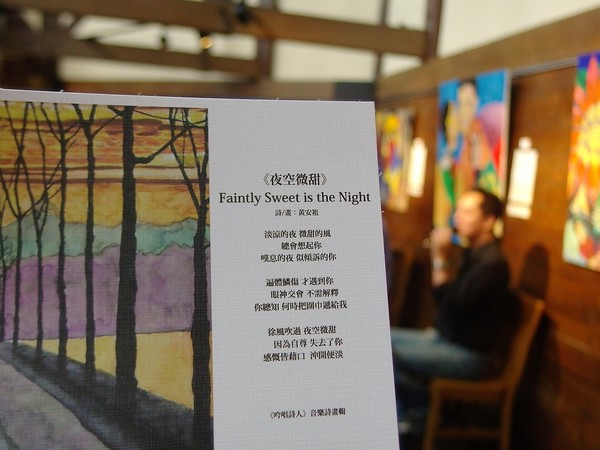 《夜空微甜》
Faintly Sweet is the Night
詩/畫:黃安祖
淡涼的夜 微甜的風
總會想起你
嘆息的夜 似傾訴的你
遍體鱗傷 才遇到你
眼神交會 不需解釋
你總知 何時把圍巾遞給我
徐風吹過 夜空微甜
因為自尊 失去了你
感慨皆藉口 沖開便淡
《吟唱詩人》音樂詩畫輯